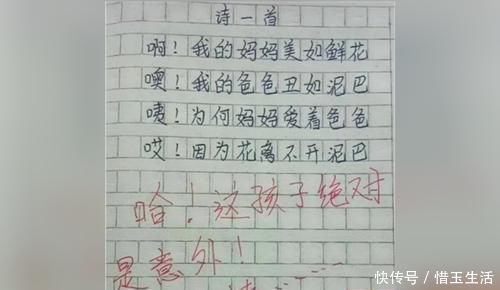 诗一首
啊！我的妈妈美如鲜花
噢！我的色色丑如泥巴
咦！为何妈妈爱着色色
哎！因为花离不开泥巴
哈！这孩子绝对
是意外！
快传号／惜玉生活